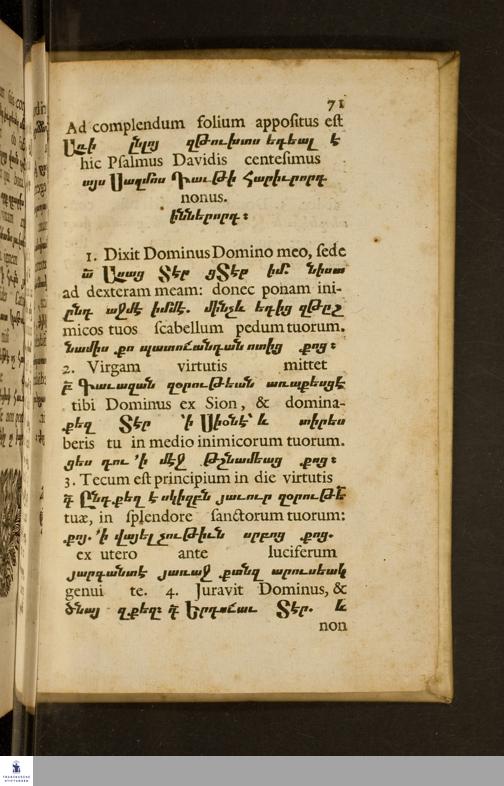 71
Ad complendum folium appositus est
Առ ի ընլոյ զթուխտս եդեալ է
hic Psalmus Davidis centesimus
այս Սաղմոս Դաւթի Հարիւրորդ
nonus.
իններորդ։
1. Dixit Dominus Domino meo, sede
Ասաց Տէր ցՏէր իմ. նիստ
ad dexteram meam: donec ponam ini-
ընդ աջմէ իմմէ. մինչև եդից զթըշ
micos tuos scabellum pedum tuorum.
նամիս քո պատուանդան ոտից քոց։
2. Virgam virtutis mittet
Գաւազան զօրութեան առաքեսցէ
tibi Dominus ex Sion, & domina-
քեզ Տէր ՚ի Սիօնէ՝ և տիրես
beris tu in medio inimicorum tuorum.
ցես դու ՚ի մէջ թշնամեաց քոց։
3. Tecum est principium in die virtutis
Ընդ քեզ է սկիզբն յաւուր զօրութե
tuæ, in splendore sanctorum tuorum:
քոյ. ՚ի վայելչութիւն սրբոց քոց.
ex utero ante luciferum
յարգանտէ յառաջ քանզ արուսեակ
genui te. 4. Juravit Dominus, &
ծնայ զքեզ։ Երդուաւ Տէր. և
non